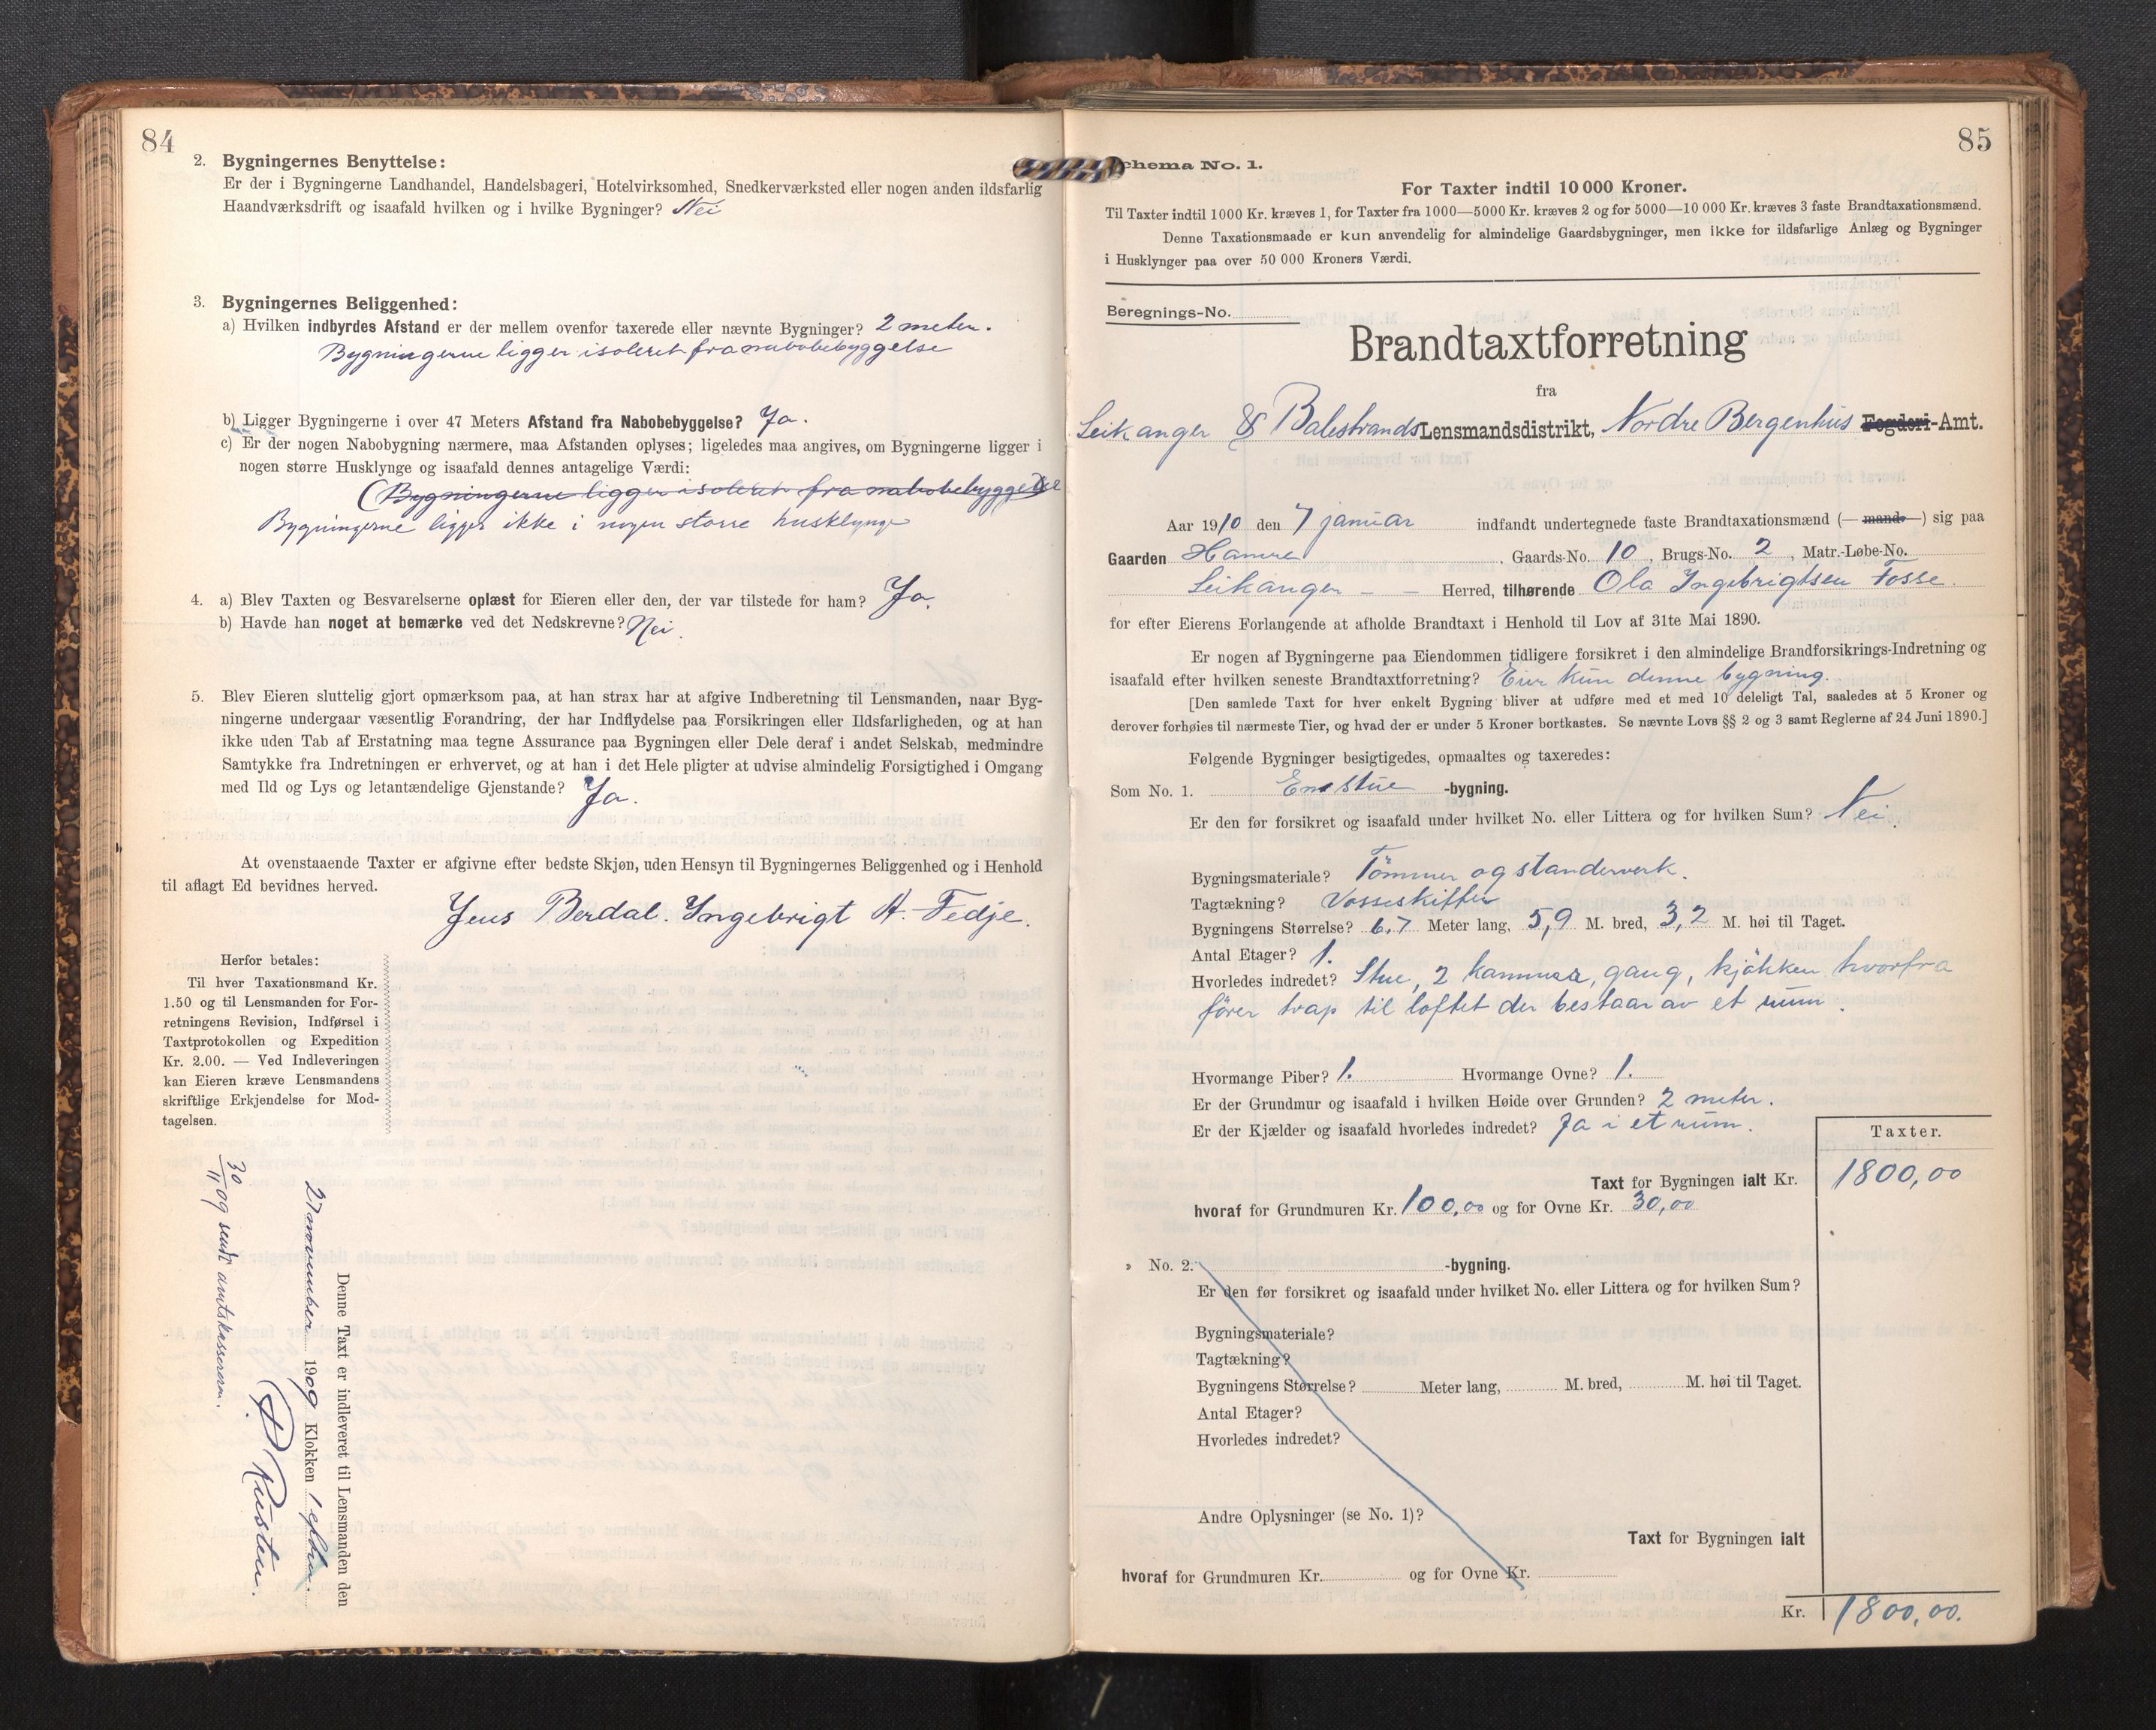 84
2. Bygningernes Benyttelse:
Er der i Bygningerne Landhandel, Handelsbageri, Hotelvirksomhed, Snedkerværksted eller nogen anden ildsfarlig
Haandværksdrift og isaafald hvilken og i hvilke Bygninger? Nei
3. Bygningernes Beliggenhed:
a) Hvilken indbyrdes Afstand er der mellem ovenfor taxerede eller nævnte Bygninger? 2 meter.
Bygningerne ligger isoleret fra nabobebyggelse
b) Ligger Bygningerne i over 47 Meters Afstand fra Nabobebyggelse? Ja.
c) Er der nogen Nabobygning nærmere, maa Afstanden oplyses; ligeledes maa angives, om Bygningerne ligger i
nogen større Husklynge og isaafald dennes antagelige Værdi:
(Bygningerne ligger isoleret fra nabobebyggelse
Bygningerne ligger ikke i nogen større husklynge
4. a) Blev Taxten og Besvarelserne oplæst for Eieren eller den, der var tilstede for ham? Ja.
b) Havde han noget at bemærke ved det Nedskrevne? Nei.
5. Blev Eieren sluttelig gjort opmærksom paa, at han strax har at afgive Indberetning til Lensmanden, naar Byg-
ningerne undergaar væsentlig Forandring, der har Indflydelse paa Forsikringen eller Ildsfarligheden, og at han
ikke uden Tab af Erstatning maa tegne Assurance paa Bygningen eller Dele deraf i andet Selskab, medmindre
Samtykke fra Indretningen er erhvervet, og at han i det Hele pligter at udvise almindelig Forsigtighed i Omgang
med Ild og Lys og letantændelige Gjenstande? Ja.
At ovenstaaende Taxter er afgivne efter bedste Skjøn, uden Hensyn til Bygningernes Beliggenhed og i Henhold
til aflagt Ed bevidnes herved.
Jens Berdal. Ingebrigt A. Fedje.
Herfor betales:
Til hver Taxationsmand Kr.
1.50 og til Lensmanden for For-
retningens Revision, Indførsel i
Taxtprotokollen og Expedition
Kr. 2.00. — Ved Indleveringen
kan Eieren kræve Lensmandens
skriftlige Erkjendelse for Mod-
tagelsen.
Denne Taxt er indleveret til Lensmanden den
27 november 1909 Klokken 1 efterm.
30/11 09 sendt amtskassereren.
85
Schema No. 1.
For Taxter indtil 10 000 Kroner.
Til Taxter indtil 1000 Kr. kræves 1, for Taxter fra 1000—5000 Kr. kræves 2 og for 5000—10 000 Kr. kræves 3 faste Brandtaxationsmænd.
Denne Taxationsmaade er kun anvendelig for almindelige Gaardsbygninger, men ikke for ildsfarlige Anlæg og Bygninger
i Husklynger paa over 50 000 Kroners Værdi.
Beregnings-No.
Brandtaxtforretning
fra
Leikanger & Balestrands Lensmandsdistrikt, Nordre Bergenhus Fogderi-Amt.
Aar 1910 den 7 januar indfandt undertegnede faste Brandtaxationsmænd (— mand —) sig paa
Gaarden Hamre, Gaards-No. 10, Brugs-No. 2, Matr.-Løbe-No.
Leikanger — — Herred, tilhørende Ola Ingebrigtsen Fosse.
for efter Eierens Forlangende at afholde Brandtaxt i Henhold til Lov af 31te Mai 1890.
Er nogen af Bygningerne paa Eiendommen tidligere forsikret i den almindelige Brandforsikrings-Indretning og
isaafald efter hvilken seneste Brandtaxtforretning? Eier kun denne bygning.
[Den samlede Taxt for hver enkelt Bygning bliver at udføre med et med 10 deleligt Tal, saaledes at 5 Kroner og
derover forhøies til nærmeste Tier, og hvad der er under 5 Kroner bortkastes. Se nævnte Lovs §§ 2 og 3 samt Reglerne af 24 Juni 1890.]
Følgende Bygninger besigtigedes, opmaaltes og taxeredes:
Som No. 1. Enestue -bygning.
Er den før forsikret og isaafald under hvilket No. eller Littera og for hvilken Sum? Nei.
Bygningsmateriale? Tømmer og standerverk.
Tagtækning? Vosseskiffer
Bygningens Størrelse? 6,7 Meter lang, 5,9 M. bred, 3,2 M. høi til Taget.
Antal Etager? 1.
Hvorledes indredet? Stue, 2 kammera, gang, kjøkken hvorfra
fører trap til loftet der bestaar av et rum.
Hvormange Piber? 1. Hvormange Ovne? 1.
Er der Grundmur og isaafald i hvilken Høide over Grunden? 2 meter.
Er der Kjælder og isaafald hvorledes indredet? Ja i et rum.
Taxter.
Taxt for Bygningen ialt Kr. 1800,00
hvoraf for Grundmuren Kr. 100,00 og for Ovne Kr. 30,00
» No. 2. -bygning.
Er den før forsikret og isaafald under hvilket No. eller Littera og for hvilken Sum?
Bygningsmateriale?
Tagtækning?
Bygningens Størrelse? Meter lang, M. bred, M. høi til Taget.
Antal Etager?
Hvorledes indredet?
Andre Oplysninger (se No. 1)?
Taxt for Bygningen ialt
hvoraf for Grundmuren Kr. og for Ovne Kr.
Kr. 1800,00.